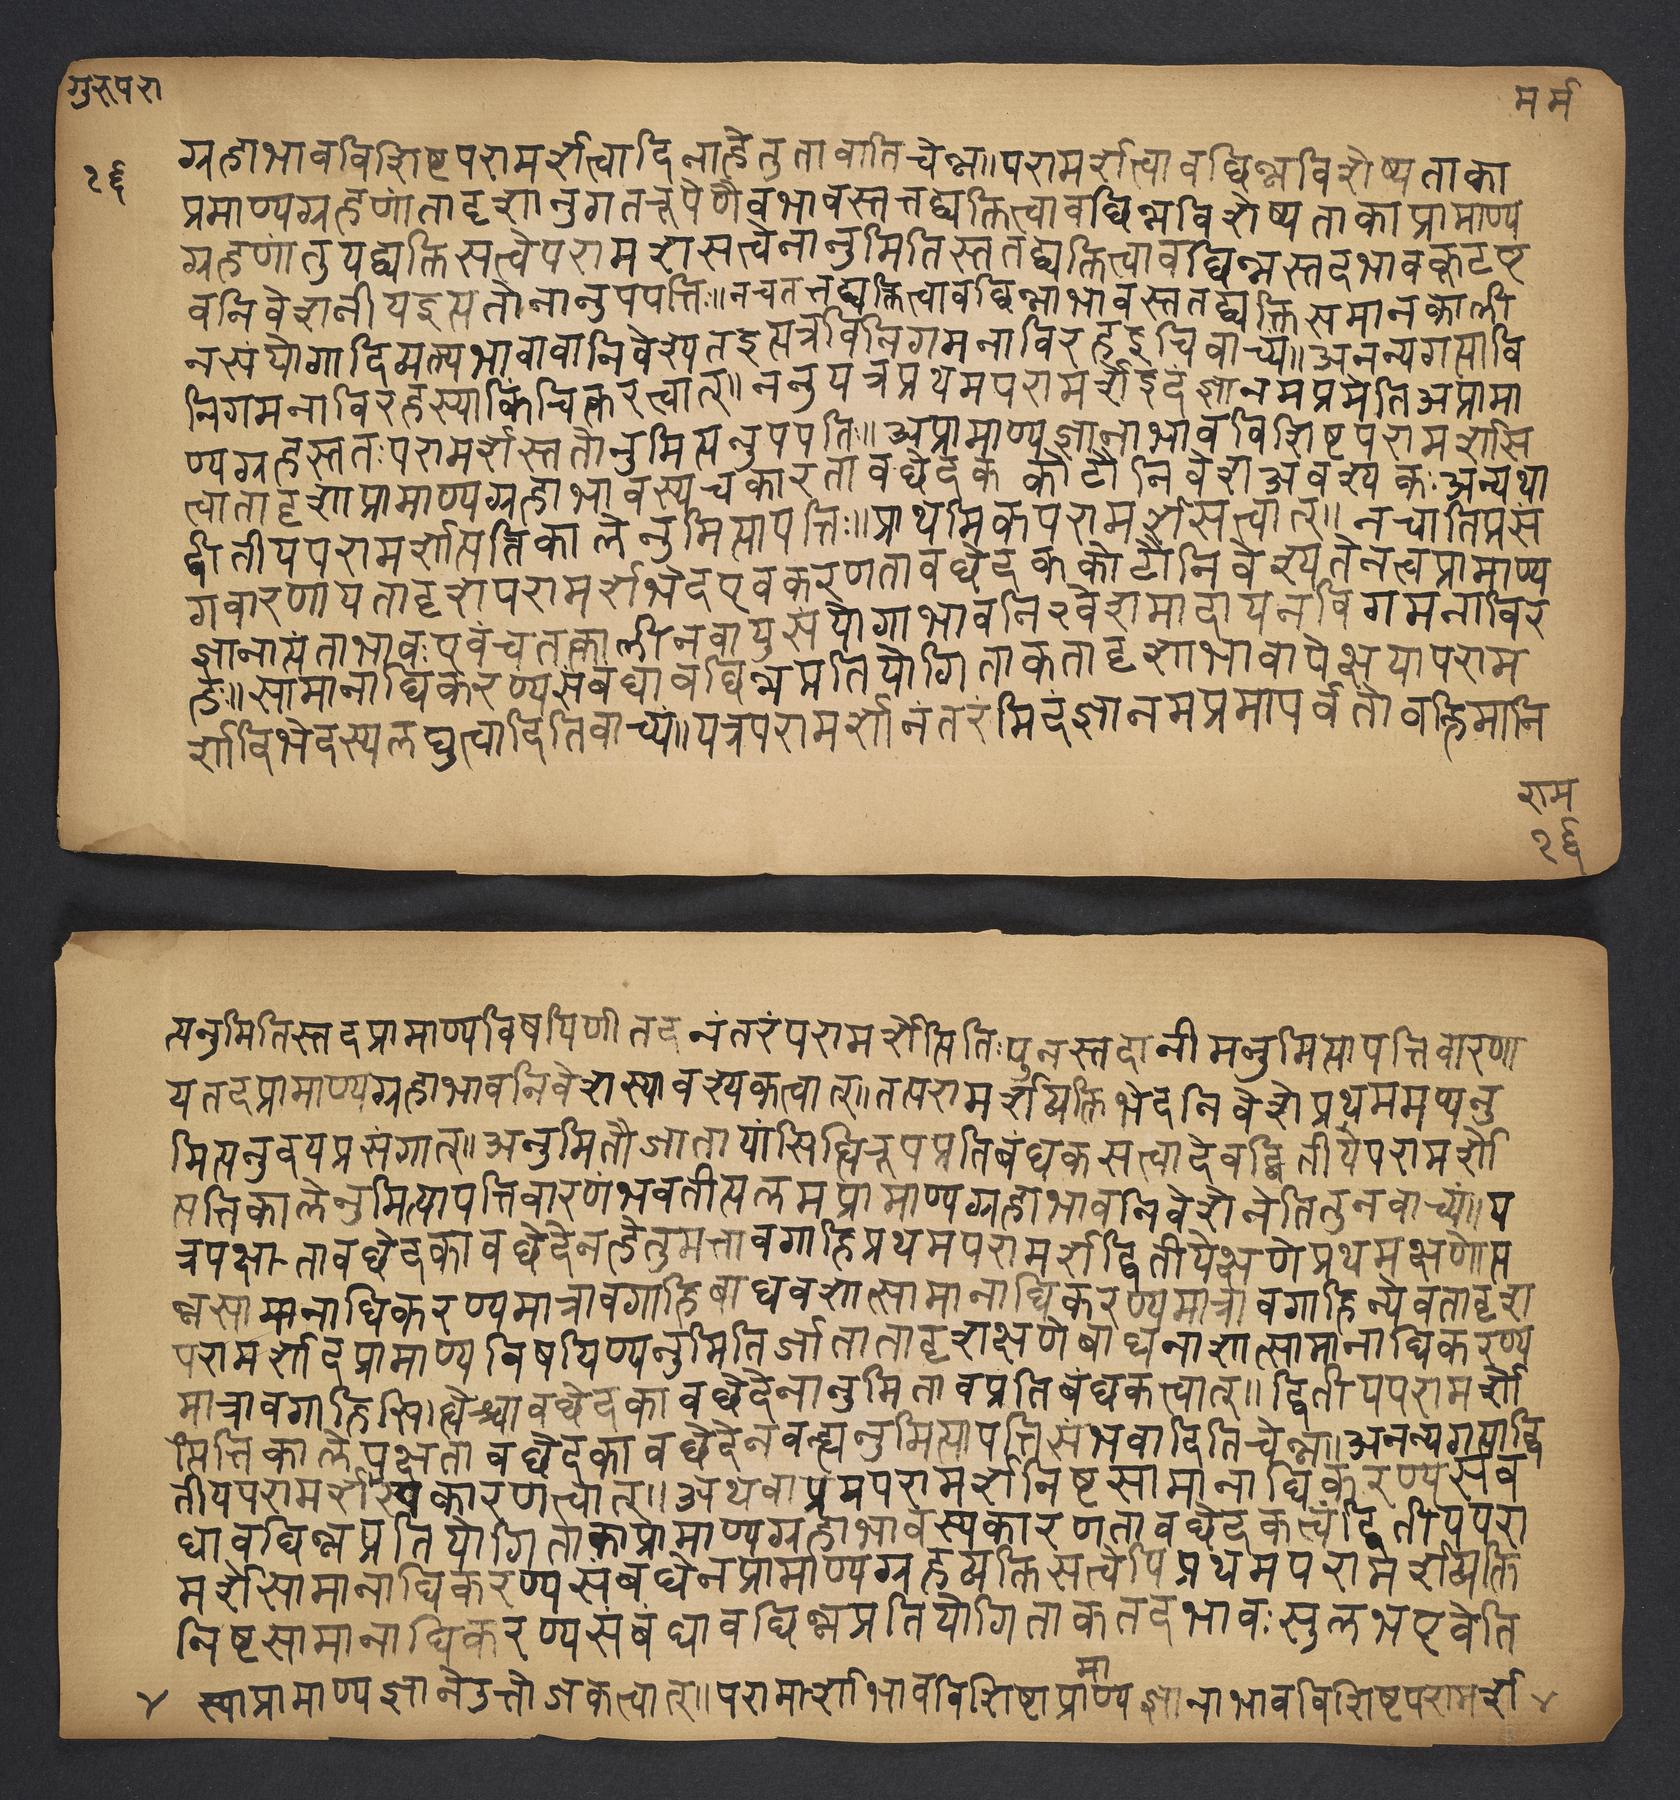 गुरुपरा
मर्म
२६
ग्रहाभावविशिष्टपरामर्शत्वादिनाहेतुतावातिचेन्न॥परामर्शत्वावछिन्नविशेष्यताका
प्रमाण्यग्रहणांतादृशानुगतरूपेणैवभावस्तत्तद्व्यक्तित्वावछिन्नविशेष्यताकाप्रामाण्य
ग्रहणांतुयद्व्यक्तिसत्वेपरामर्शसत्वेनानुमितिस्तत्तद्व्यक्तित्वावछिन्नस्तदभावकूटएव
वनिवेशनीयइत्यतोनानुपपत्तिः॥नचतत्तद्व्यक्तित्वावछिन्नाभावस्तत्तद्व्यक्तिसमानकाली
नसंयोगादिमत्यभावावानिवेश्यतइत्यत्रविनिगमनाविरहइचिवाच्यं॥अनन्यगत्यावि
निगमनाविरहस्याकिंचित्करत्वात्॥ननुयत्रप्रथमपरामर्शेइदंज्ञानमप्रमेतिअप्रामा
ण्यग्रहस्ततःपरामर्शस्ततोनुमित्यनुपपतिः॥अप्रामाण्यज्ञानाभावविशिष्टपरामर्शसि
त्वातादृशाप्रामाण्यग्रहाभावस्यचकारतावछेदककोटौनिवेशअवश्यकःअन्यथा
द्वितीयपरामर्शोत्पत्तिकालेनुमित्यापत्तिः॥प्राथमिकपरामर्शसत्वात्॥नचातिप्रसं
गवारणायतादृशपरामर्शभेदएवकरणतावछेदककोटौनिवेश्यतेनत्वप्रामाण्य
ज्ञानात्यंताभावःएवंचतत्कालीनवायुसंयोगाभावनिरवेशमादायनविगमनाविर
हः॥सामानाधिकरण्यसंबंधावछिन्नप्रतियोगिताकतादृशाभावापेक्षयापराम
र्शादिभेदस्यलघुत्वादितिवाच्यं॥यत्रपरामर्शानंतरंमिदंज्ञानमप्रमापर्वतोवह्निमानि
राम
२६
त्यनुमितिस्तदप्रामाण्यविषयिणीतदनंतरंपरामर्शोत्पतिःपुनस्तदानीमनुमित्यापत्तिवारणा
यतदप्रामाण्यग्रहाभावनिवेशस्यावश्यकत्वात्॥तत्परामर्शव्यक्तिभेदनिवेशेप्रथममप्यनु
मित्यनुदयप्रसंगात्॥अनुमितौजातायांसिद्धिरूपप्रतिबंधकसत्वादेवद्वितीयेपरामर्शो
त्पत्तिकालेनुमित्यापत्तिवारणंभवतीत्यलमप्रामाण्यग्रहाभावनिवेशेनेतितुनवाच्यं॥य
त्रपक्षातावछेदकावछेदेनहेतुमत्तावगाहिप्रथमपरामर्शद्वितीयेक्षणेप्रथमक्षणोत्प
न्नसामानाधिकरण्यमात्रावगाहिबाधवशात्सामानाधिकरण्यमात्रावगाहिन्येवतादृश
परामर्शादप्रामाण्यविषयिण्यनुमितिर्जातातादृशक्षणेबाधनाशात्सामानाधिकरण्य
मात्रावगाहिसि।द्धेश्चावछेदकावछेदेनानुमितावप्रतिबंधकत्वात्॥द्वितीयपरामर्शो
त्पत्तिकालेपक्षतावछेदकावछेदेनवन्ह्यनुमित्यापत्तिसंभवादितिचेन्न॥अनन्यगत्याद्वि
तीयपरामर्शस्यकारणत्वात्॥अथवाप्रंमपरामर्शनिष्टसामानाधिकरण्यसंब
धावछिन्नप्रतियोगिताकाप्रामाण्यग्रहाभावस्यकारणतावछेदकत्वंद्वितीयपरा
मर्शेसामानाधिकरण्यसंबंधेनप्रामाण्यग्रहव्यक्तिसत्वेपिप्रथमपरामर्शव्यक्ति
निष्टसामानाधिकरण्यसंबंधावछिन्नप्रतियोगिताकतदभावःसुलभएवेति
४ स्याप्रामाण्यज्ञानेउत्तेजकत्वात्॥परामार्शाभावविशिष्टाप्राण्यज्ञानाभावविशिष्टपरामर्श ४
मा